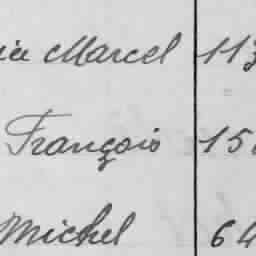 Marcel 113
François 15
Michel 64